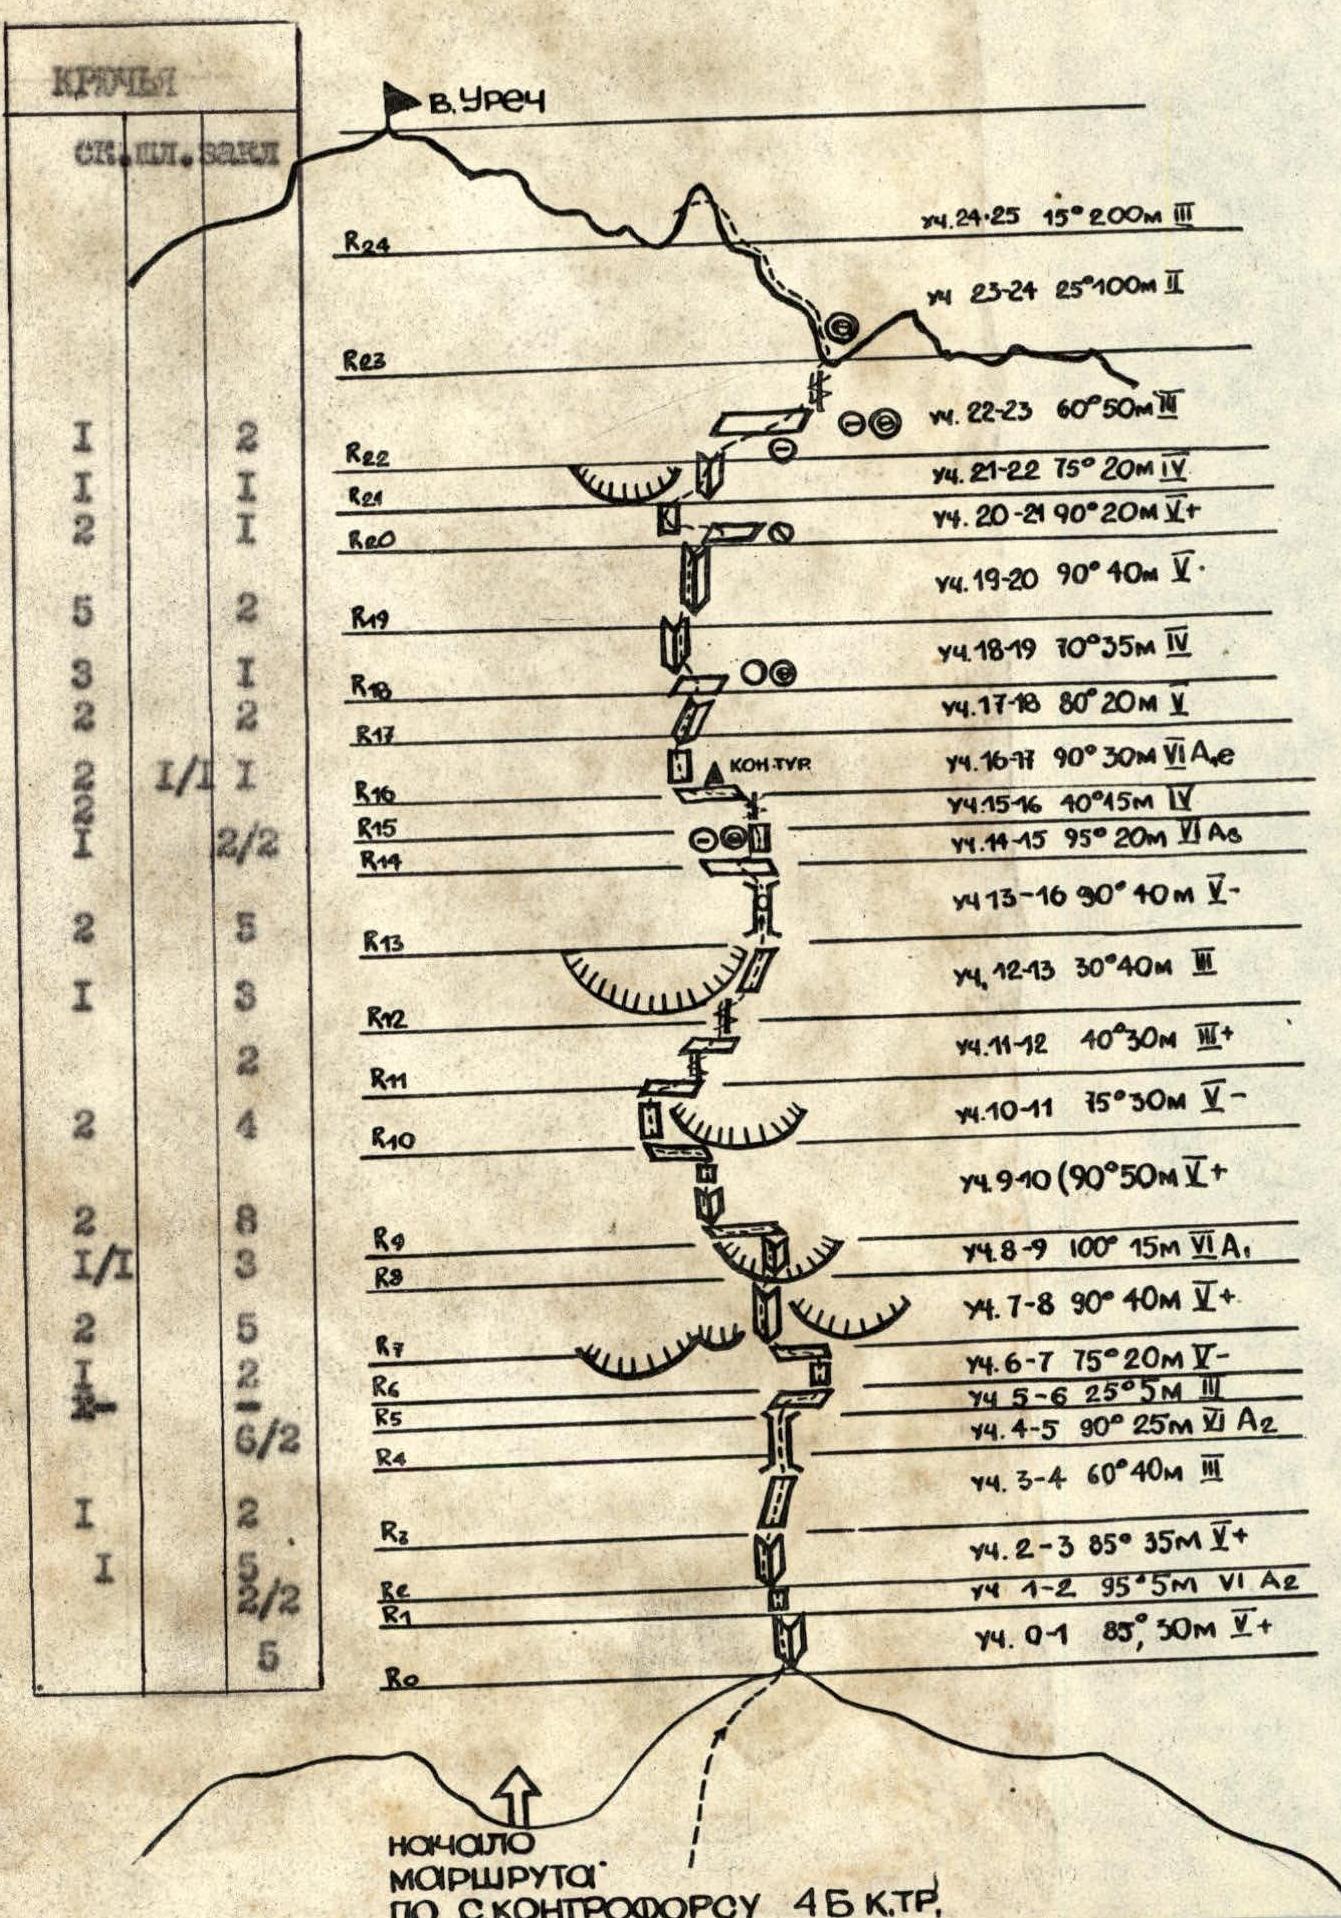 КРЮЧЬЯ
ск. шл. закл
В. Уреч
уч. 24-25 15° 200м III
R24
уч 23-24 25° 100м II
R23
I 2 уч. 22-23 60° 50м III
R22
I I уч. 21-22 75° 20м IV
R21
2 I уч. 20-21 90° 20м V+
R20
5 2 уч. 19-20 90° 40м V
R19
3 I уч. 18-19 70° 35м IV
R18
2 2 уч. 17-18 80° 20м V
R17
2 I/I I КОН.ТУР уч. 16-17 90° 30м VI А,е
R16
2 уч. 15-16 40° 15м IV
R15
I 2/2 уч. 14-15 95° 20м VI
R14
2 5 уч 13-16 90° 40м V-
R13
I 3 уч. 12-13 30° 40м III
R12
2 уч. 11-12 40° 30м III+
R11
2 4 уч. 10-11 75° 30м V-
R10
2 8 уч. 9-10 (90° 50м V+
R9
I/I 3 уч. 8-9 100° 15м VI А1
R8
2 5 уч. 7-8 90° 40м V+
R7
I 2 уч. 6-7 75° 20м V-
R6
- уч 5-6 25° 5м III
R5
6/2 уч. 4-5 90° 25м VI А2
R4
I 2 уч. 3-4 60° 40м III
R3
I 5 уч. 2-3 85° 35м V+
R2
2/2 уч 1-2 95° 5м VI А2
R1
5 уч. 0-1 85°, 30м V+
R0
НАЧАЛО
МАРШРУТА
ПО С КОНТРОФОРСУ 4Б К.ТР.